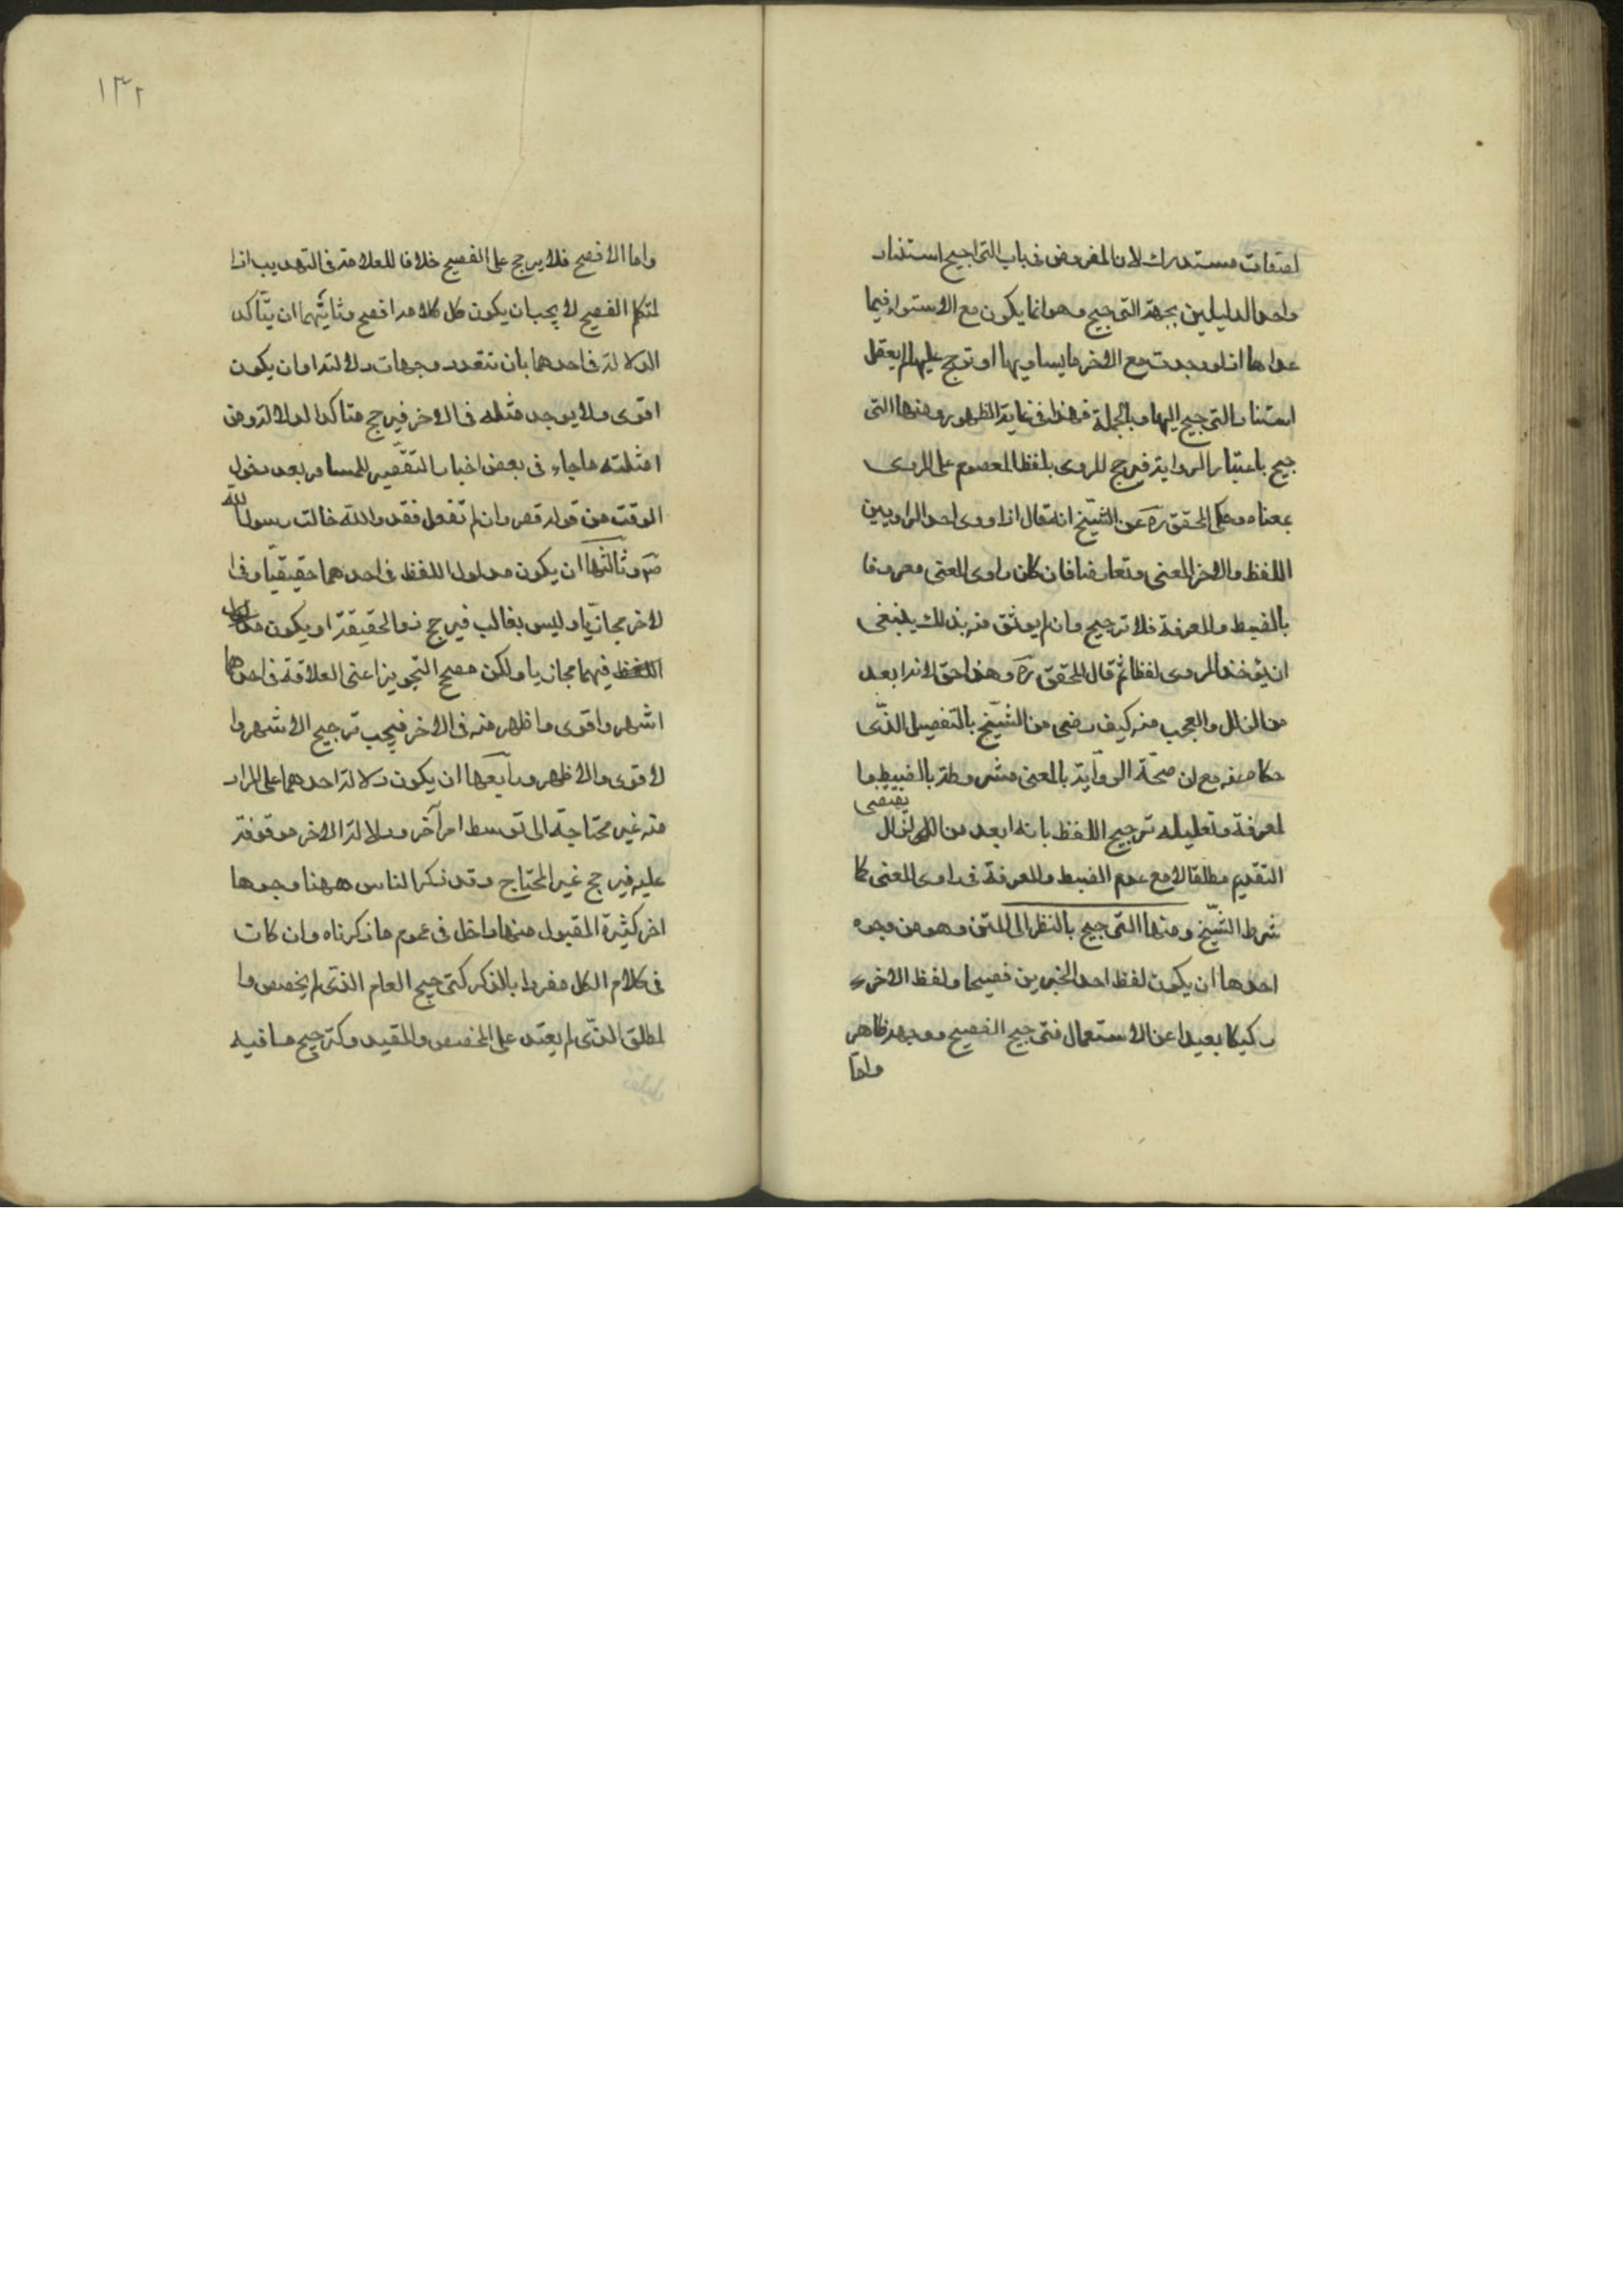 لصفات مستدرك لان المفروض فى باب التراجيح استناد
واحد الدليلين بجهة الترجيح وهو انما يكون مع الاستواء فيما
عداها اذ لو وجدت مع الاخر ما يساويها او ترجح عليها لم يعقل
استناد الترجيح اليها وبالجملة فهذا فى غاية الظهور ومنها التر
جيح باعتبار الرواية فيرجح المروى بلفظ المعصوم على المروى
بمعناه وحكى المحقق ره عن الشيخ انه قال اذا روى احد الراويين
اللفظ والاخر المعنى وتعارضا فان كان راوى المعنى معروفا
بالضبط والمعرفة فلا ترجيح وان لم يوثق منه بذلك ينبغى
ان يؤخذ المروى لفظا ثم قال المحقق ره وهذا حق لانه ابعد
من الزلل والعجب منه كيف رضى من الشيخ بالتفصيل الذى
حكاه عنه مع ان صحة الرواية بالمعنى مشروطة بالضبط وا
لمعرفة وتعليله ترجيح اللفظ بانه ابعد من الزلل يقتضى
التقديم مطلقا لا مع عدم الضبط والمعرفة فى راوى المعنى كما
شرط الشيخ ومنها الترجيح بالنظر الى المتن وهو من وجوه
احدها ان يكون لفظ احد الخبرين فصيحا ولفظ الاخر
ركيكا بعيدا عن الاستعمال فترجيح الفصيح ووجهه ظاهر
واما
١٣٢
واما الافصح فلا يرجح على الفصيح خلافا للعلامة فى التهذيب اذا
لمتكلم الفصيح لا يجب ان يكون كل كلامه افصح وثانيهما ان يتأكد
الدلالة فى احدهما بان تتعدد وجهات دلالته او ان يكون
اقوى ولا يوجد مثله فى الاخر فيرجح متاكد الدلالة ومن
امثلته ما جاء فى بعض اخبار التقصير للمسافر بعد دخول
الوقت من قوله قصر وان لم تفعل فقد والله خالفت رسول الله
ص وثالثها ان يكون مدلول اللفظ فى احدهما حقيقيا وفى ا
لاخر مجازيا وليس بغالب فيرجح ذو الحقيقة او يكون مدلول
اللفظ فيهما مجازيا ولكن مصحح التجويز اعنى العلاقة فى احدهما
اشهر واقوى واظهر منه فى الاخر فيجب ترجيح الاشهر وا
لاقوى والاظهر ورابعها ان يكون دلالة احدهما على المراد
منه غير محتاجة الى توسط امر آخر ودلالة الاخر موقوفة
عليه فيرجح غير المحتاج وقد ذكر الناس ههنا وجوها
اخر كثيرة المقبول منها داخل فى عموم ما ذكرناه وان كان
فى كلام الكل مفردا بالذكر كترجيح العام الذى لم يخصص وا
لمطلق الذى لم يقيد على المخصص والمقيد وكترجيح ما فيه